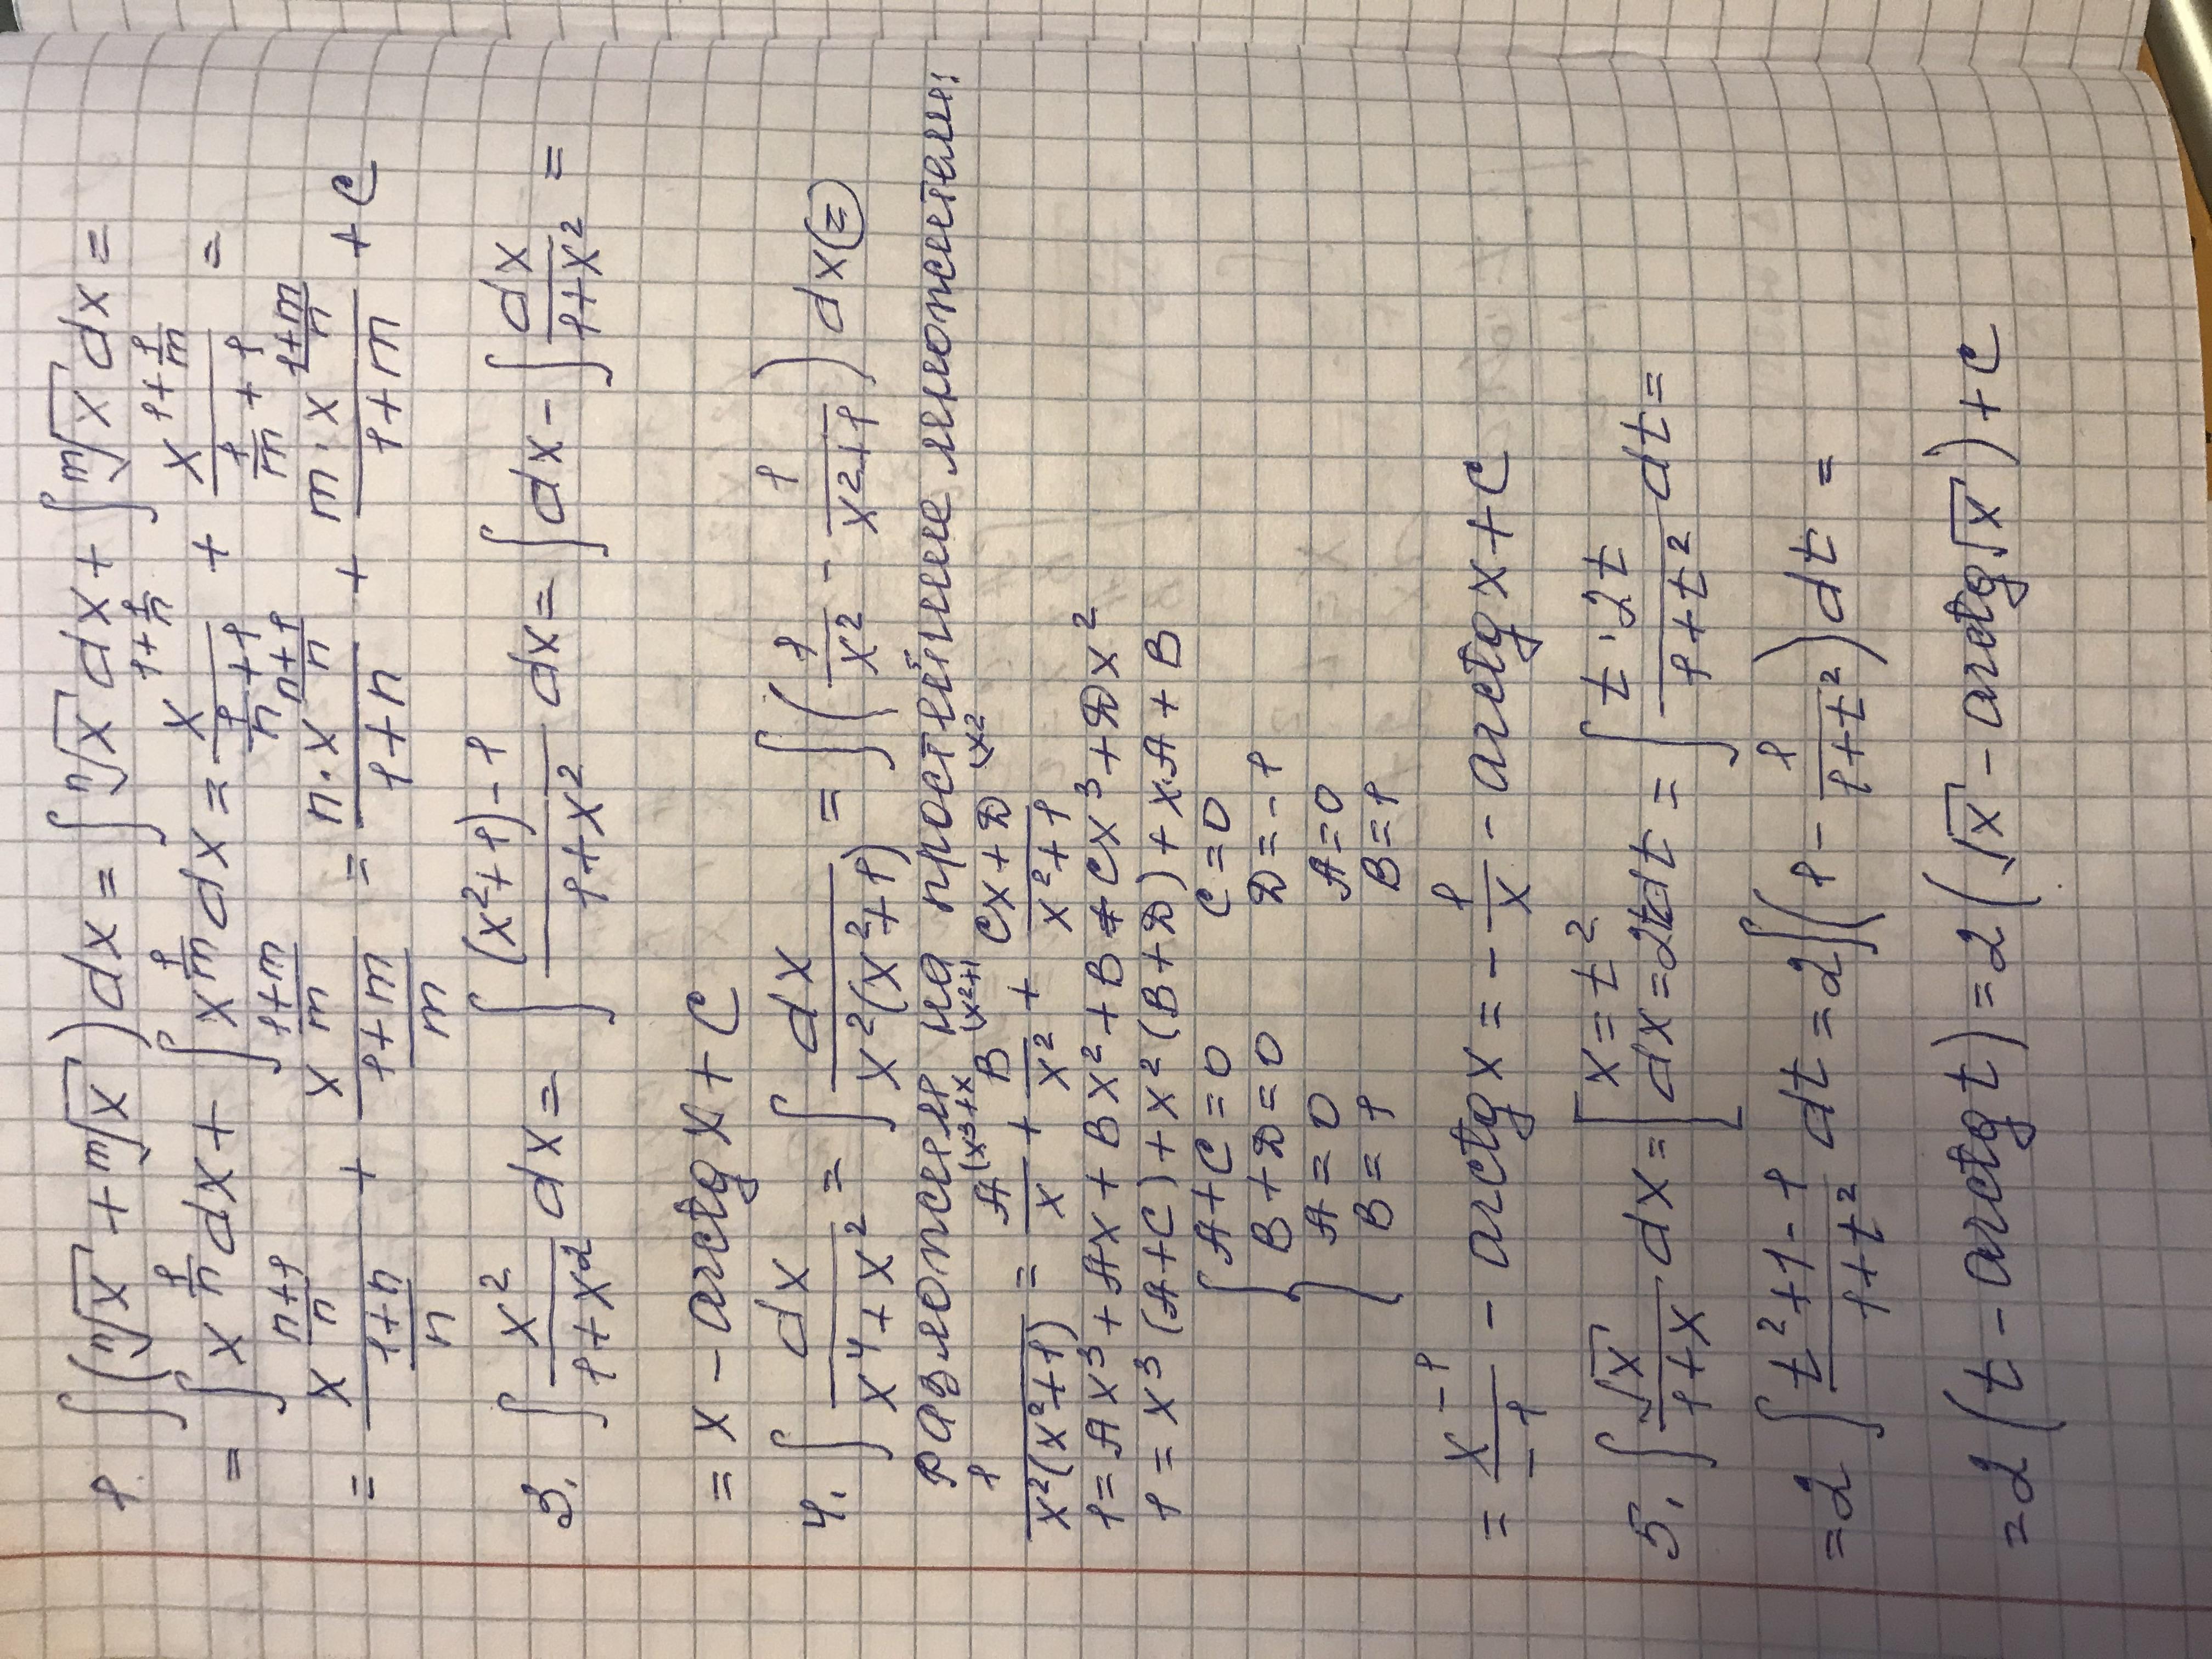 1. ∫(ⁿ√x + ᵐ√x)dx = ∫ⁿ√x dx + ∫ᵐ√x dx =
= ∫x^(1/n) dx + ∫x^(1/m) dx = x^(1+1/n)/(1/n + 1) + x^(1+1/m)/(1/m + 1) =
= x^((n+1)/n)/((1+n)/n) + x^((1+m)/m)/((1+m)/m) = n·x^((n+1)/n)/(1+n) + m·x^((1+m)/n)/(1+m) + C
3. ∫x²/(1+x²) dx = ∫((x²+1)-1)/(1+x²) dx = ∫dx - ∫dx/(1+x²) =
= x - arctg x + C
4. ∫dx/(x⁴+x²) = ∫dx/(x²(x²+1)) = ∫(1/x² - 1/(x²+1))dx (=)
Разложем на простейшие множители:
1/(x²(x²+1)) = A(x³+x/x + B(x²+1/x² + Cx+D(x²/(x²+1)
1 = Ax³ + Ax + Bx² + B + Cx³ + Dx²
1 = x³(A+C) + x²(B+D) + x·A + B
{A+C=0 C=0
B+D=0 D=-1
A=0 A=0
B=1 B=1
= x⁻¹/-1 - arctg x = - 1/x - arctg x + C
5. ∫√x/(1+x) dx = [x=t² dx=2tdt = ∫t·2t/(1+t²) dt =
= 2∫(t²+1-1)/(1+t²) dt = 2∫(1 - 1/(1+t²))dt =
= 2(t - arctg t) = 2(√x - arctg√x) + C